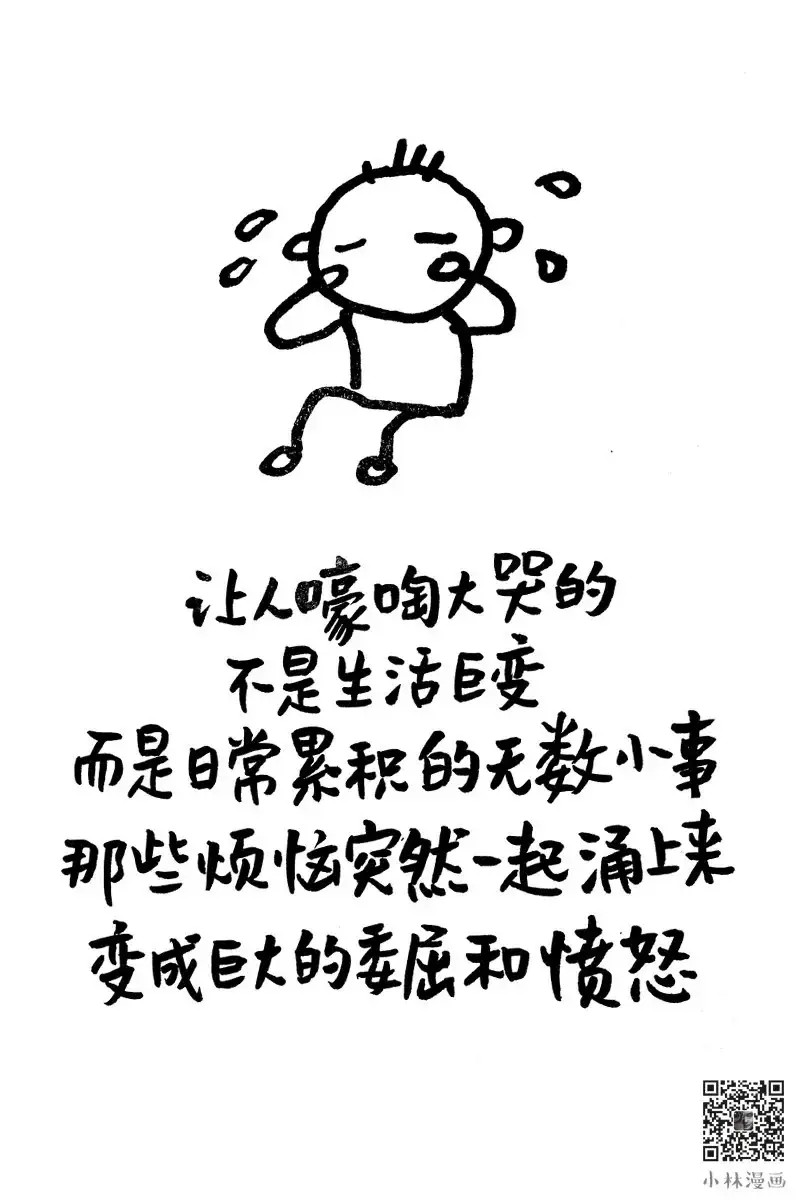 让人嚎啕大哭的
不是生活巨变
而是日常累积的无数小事
那些烦恼突然一起涌上来
变成巨大的委屈和愤怒
小林漫画